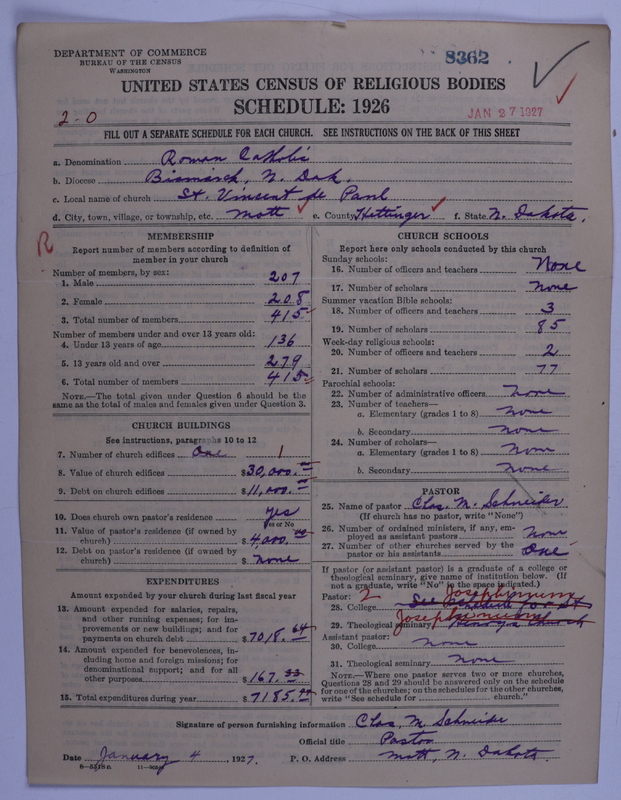 DEPARTMENT OF COMMERCE
BUREAU OF THE CENSUS
WASHINGTON
8362
UNITED STATES CENSUS OF RELIGIOUS BODIES
SCHEDULE: 1926
2-0
JAN 27 1927
FILL OUT A SEPARATE SCHEDULE FOR EACH CHURCH. SEE INSTRUCTIONS ON THE BACK OF THIS SHEET
a. Denomination Roman Catholic
b. Diocese Bismarck, N. Dak.
c. Local name of church St. Vincent de Paul
d. City, town, village, or township, etc. Mott e. County Hettinger f. State N. Dakota.
R
MEMBERSHIP
Report number of members according to definition of
member in your church
Number of members, by sex:
1. Male 207
2. Female 208
3. Total number of members 415
Number of members under and over 13 years old:
4. Under 13 years of age 136
5. 13 years old and over 279
6. Total number of members 415
NOTE.—The total given under Question 6 should be
the same as the total of males and females given under Question 3.
CHURCH BUILDINGS
See instructions, paragraphs 10 to 12
7. Number of church edifices One 1
8. Value of church edifices $30,000.00
9. Debt on church edifices $11,000.00
10. Does church own pastor's residence yes
Yes or No
11. Value of pastor's residence (if owned by
church) $4,000.00
12. Debt on pastor's residence (if owned by
church) $ none
EXPENDITURES
Amount expended by your church during last fiscal year
13. Amount expended for salaries, repairs,
and other running expenses; for im-
provements or new buildings; and for
payments on church debt $7018.64
14. Amount expended for benevolences, in-
cluding home and foreign missions; for
denominational support; and for all
other purposes $167.33
15. Total expenditures during year $7185.97
CHURCH SCHOOLS
Report here only schools conducted by this church
Sunday schools:
16. Number of officers and teachers None
17. Number of scholars none
Summer vacation Bible schools:
18. Number of officers and teachers 3
19. Number of scholars 85
Week-day religious schools:
20. Number of officers and teachers 2
21. Number of scholars 77
Parochial schools:
22. Number of administrative officers none
23. Number of teachers—
a. Elementary (grades 1 to 8) none
b. Secondary none
24. Number of scholars—
a. Elementary (grades 1 to 8) none
b. Secondary none
PASTOR
25. Name of pastor Chas. M. Schneider
(If church has no pastor, write "None")
26. Number of ordained ministers, if any, em-
ployed as assistant pastors none
27. Number of other churches served by the
pastor or his assistants One
If pastor (or assistant pastor) is a graduate of a college or
theological seminary, give name of institution below. (If
not a graduate, write "No" in the space indicated.)
Pastor: 2 Josephinum
28. College See Schedule for St
29. Theological seminary Josephinum church
Assistant pastor:
30. College none
31. Theological seminary none
NOTE.—Where one pastor serves two or more churches,
Questions 28 and 29 should be answered only on the schedule
for one of the churches; on the schedules for the other churches,
write "See schedule for church."
Signature of person furnishing information Chas. M. Schneider
Official title Pastor
Date January 4, 1927. P. O. Address Mott, N. Dakota.